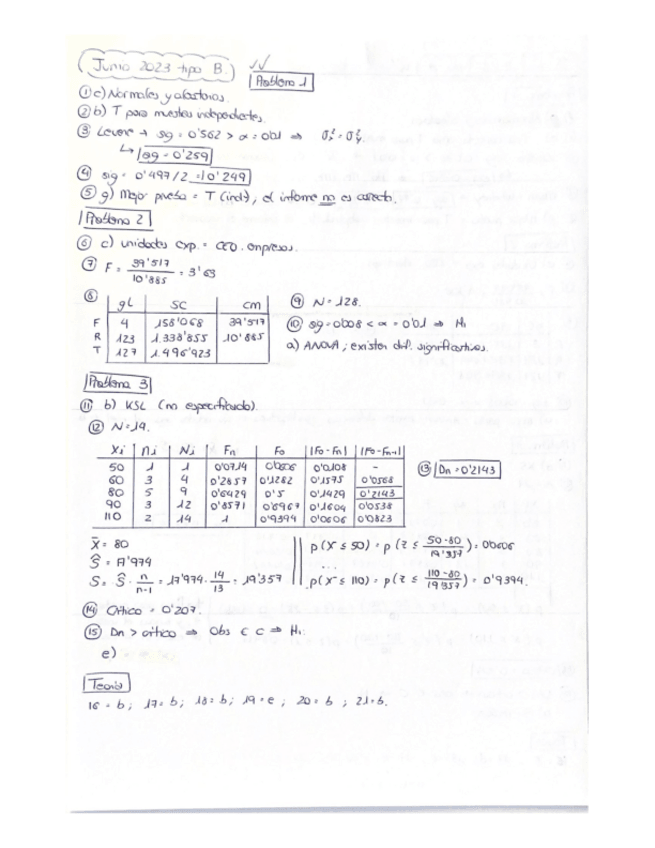 Junio 2023 tipo B.
Problema 1
① c) Normales y aleatorias.
② b) T para muestras independientes.
③ Levene → sig = 0'562 > α = 0'01 ⇒ σx² = σy²
↳ sig = 0'259
④ sig = 0'497/2 = 0'249
⑤ g) Mejor prueba = T (indt), el informe no es correcto.
Problema 2
⑥ c) unidades exp. = CEO. empresas.
⑦ F = 39'517 / 10'885 = 3'63
⑧ gl SC cm
F 4 158'068 39'517
R 123 1.338'855 10'885
T 127 1.496'923
⑨ N = 128.
⑩ sig = 0'008 < α = 0'01 ⇒ H₁
a) ANOVA; existen dif. significativas.
Problema 3
⑪ b) KSL (no especificado).
⑫ N = 14.
Xi ni Ni Fn Fo |Fo - Fn| |Fo - Fn-1|
50 1 1 0'0714 0'0606 0'0108 -
60 3 4 0'2857 0'1282 0'1575 0'0568
80 5 9 0'6429 0'5 0'1429 0'2143
90 3 12 0'8571 0'6967 0'1604 0'0538
110 2 14 1 0'9394 0'0606 0'0823
⑬ Dn = 0'2143
X̄ = 80
Ŝ = 17'974
S = Ŝ · n / n-1 = 17'974 · 14 / 13 = 19'357
p(X ≤ 50) = p(Z ≤ 50-80 / 19'357) = 0'0606
...
p(X ≤ 110) = p(Z ≤ 110-80 / 19'357) = 0'9394.
⑭ Crítico = 0'207.
⑮ Dn > crítico ⇒ Obs ∈ C ⇒ H₁.
e)
Teoría
16 = b; 17 = b; 18 = b; 19 = e; 20 = b; 21 = b.